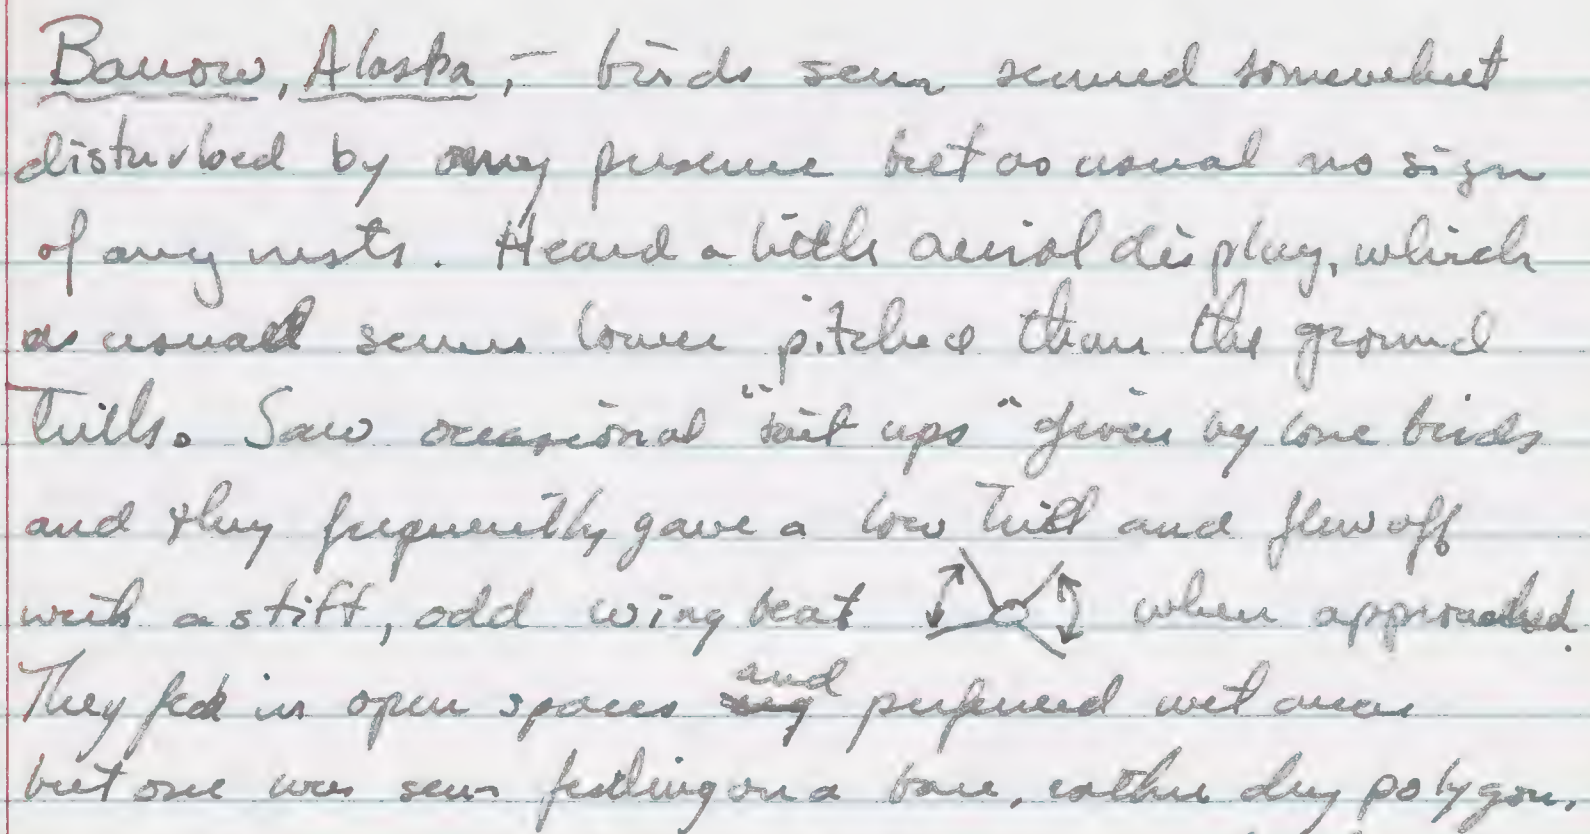 Barrow, Alaska, - birds seen seemed somewhat
disturbed by my presence but as usual no sign
of any nests. Heard a little aerial display, which
as usual seems lower pitched than the ground
trills. Saw occasional "tail ups" given by lone birds
and they frequently gave a low trill and flew off
with a stiff, odd wing beat when approached.
They fed in open spaces and preferred wet areas
but one was seen feeding on a bare, rather dry polygon.